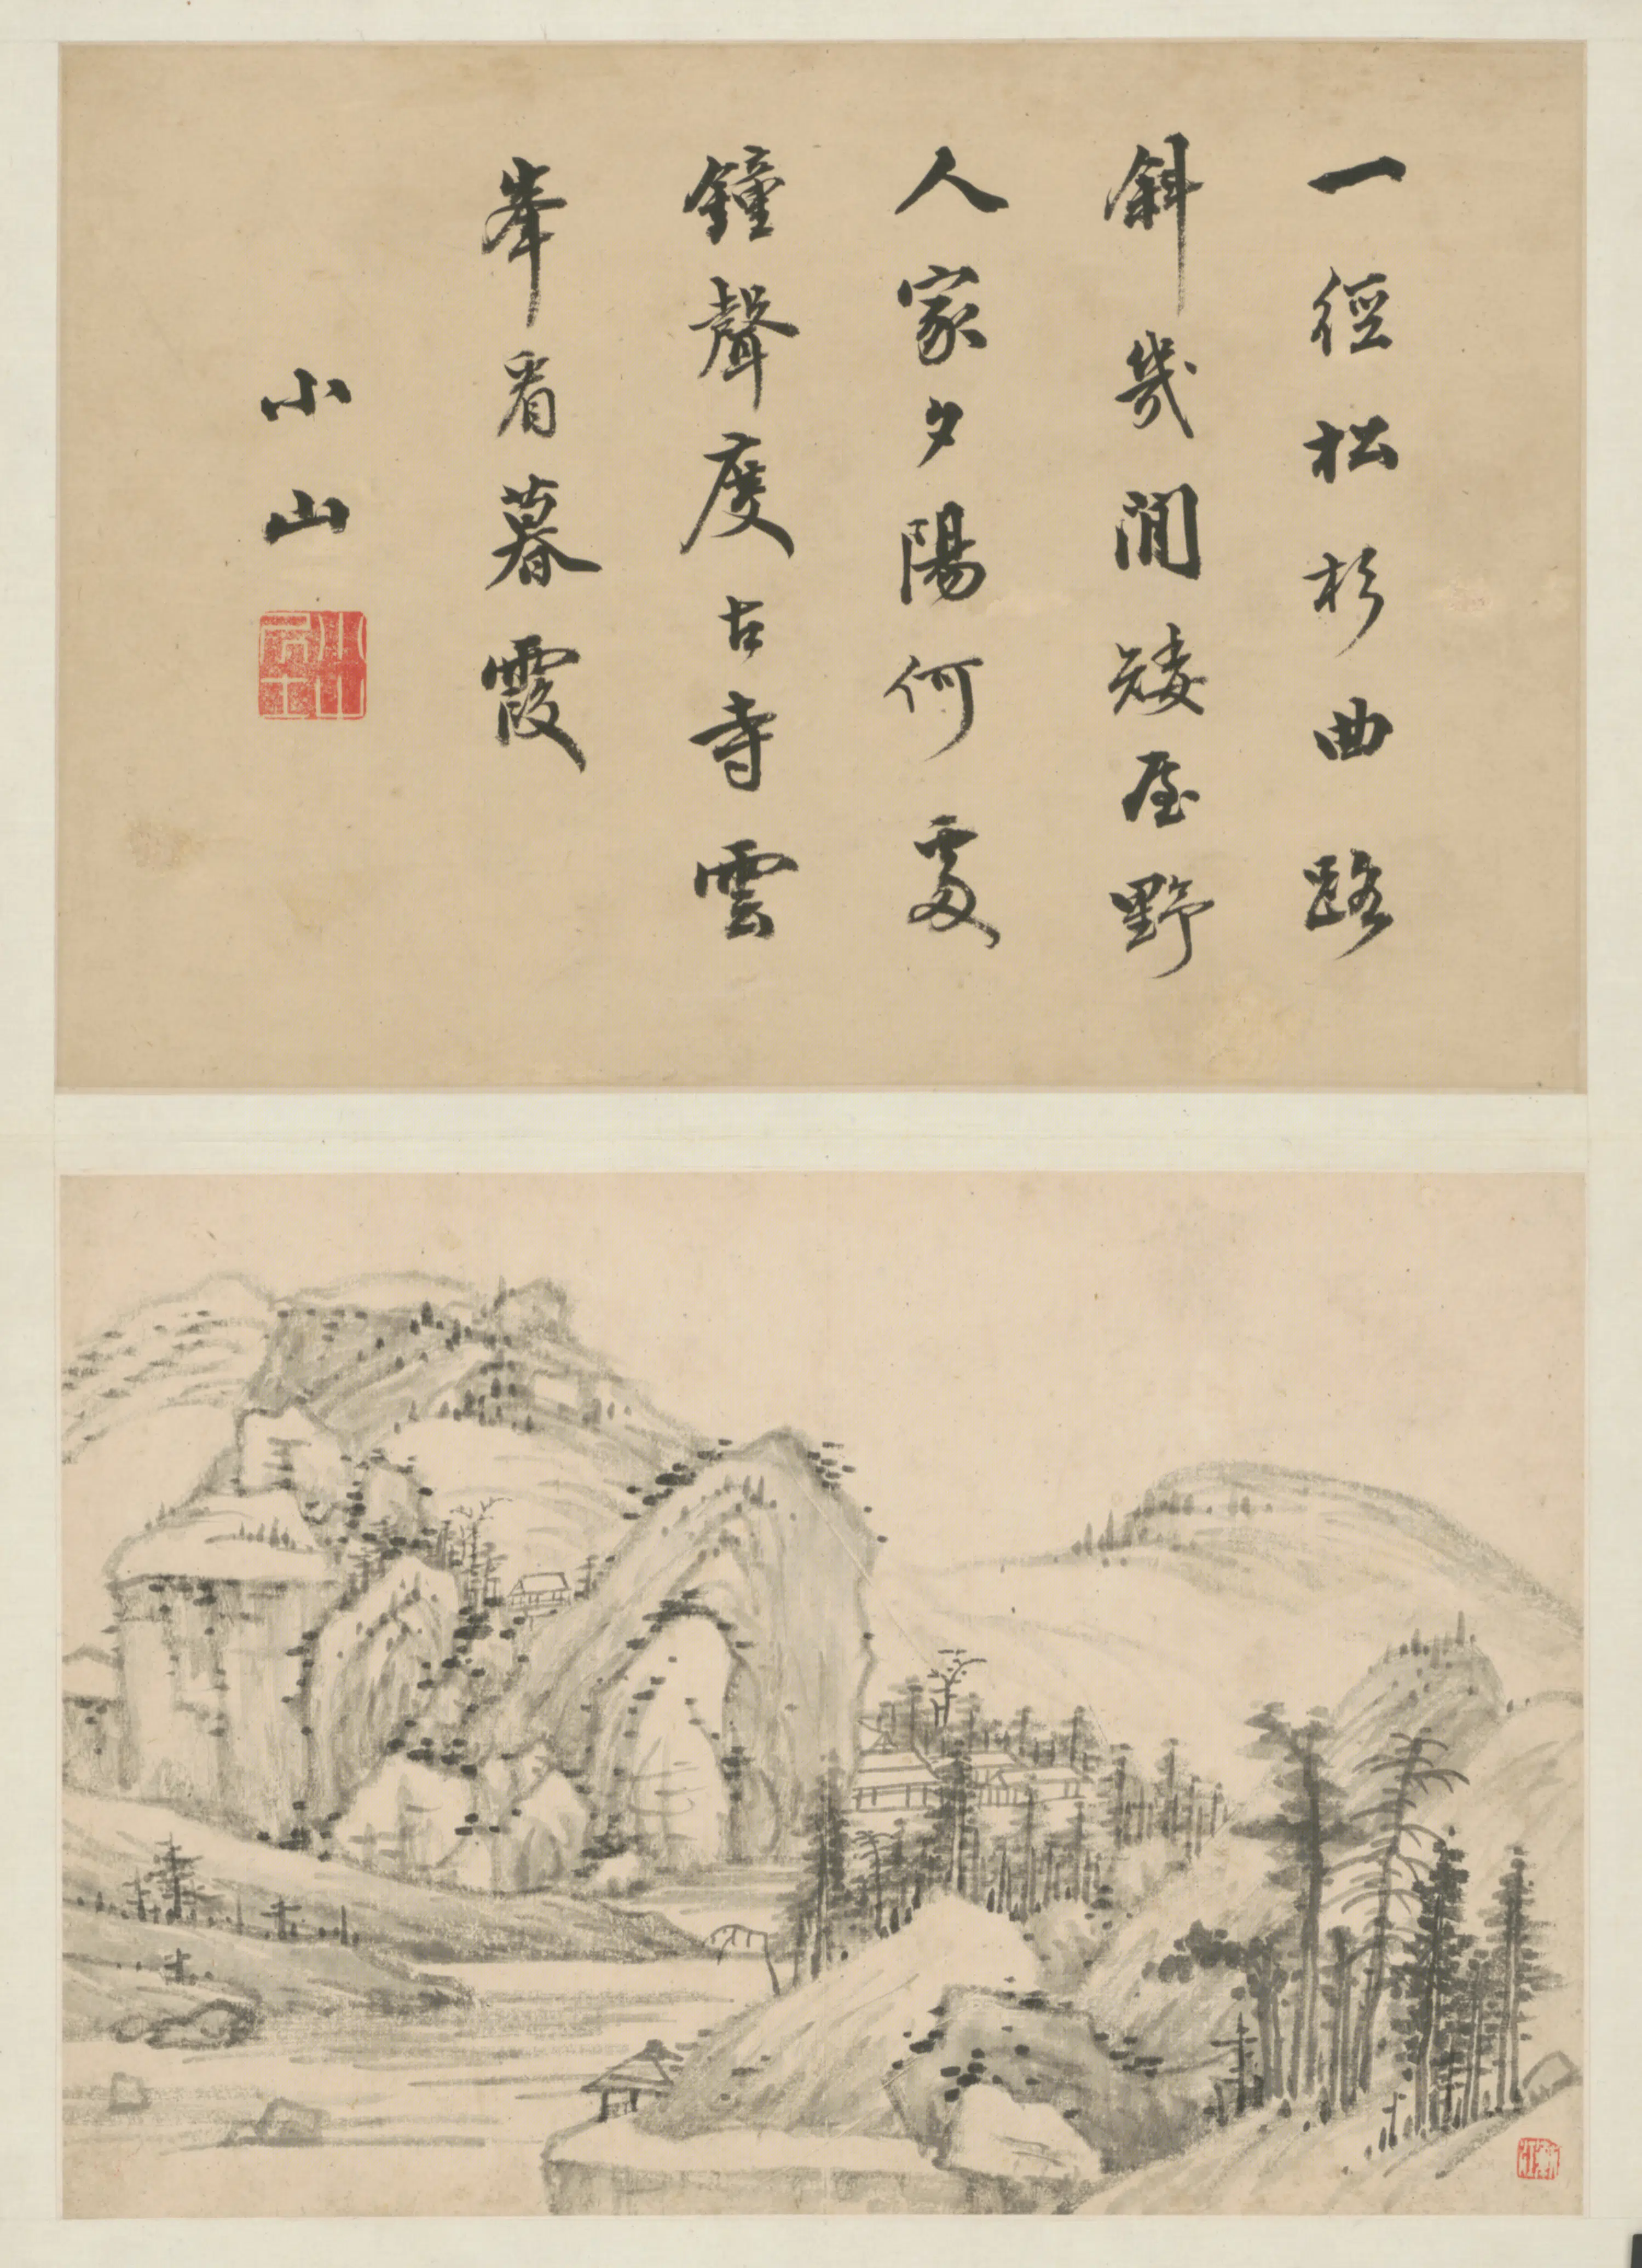 一徑松杉曲路
斜幾間矮屋野
人家夕陽何處
鐘聲度古寺雲
峯看暮霞
小山